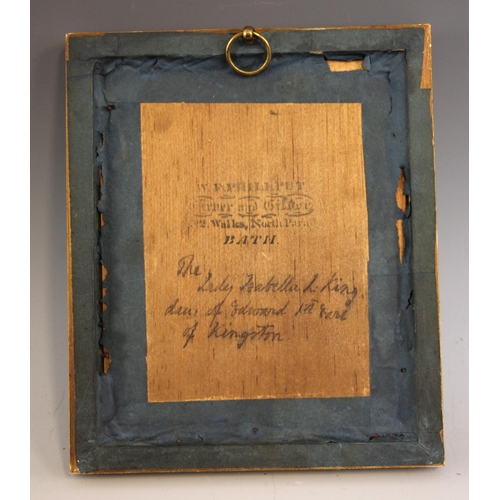 W. F. PHILLPUT
Carver and Gilder
2, Walks, North Para
BATH.
The
Lady Isabella L. King.
dau. of Edward 1st Earl
of Kingston